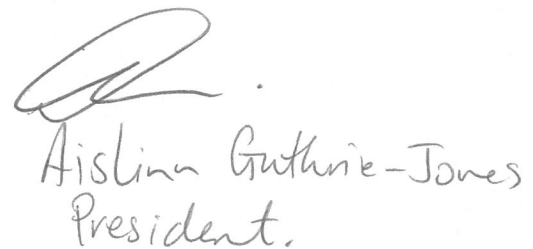 Aislinn Guthrie-Jones
President.